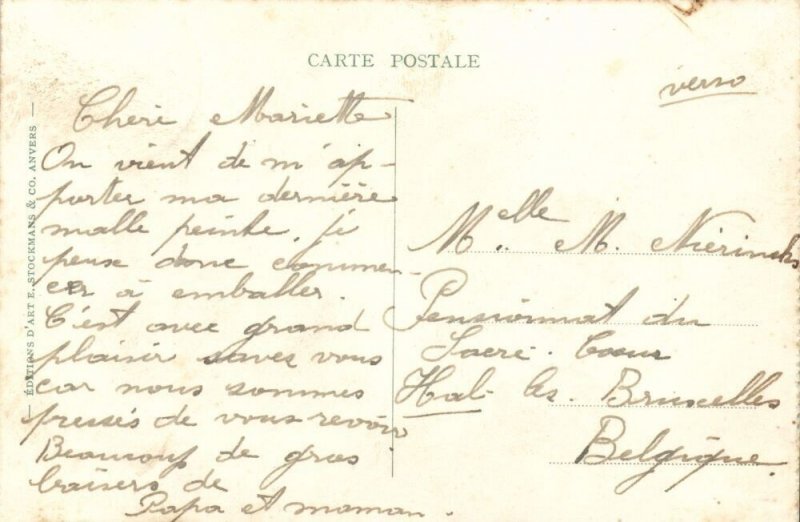 CARTE POSTALE
verso
— ÉDITIONS D'ART E. STOCKMANS & CO. ANVERS —
Cheri Mariette
On vient de m'ap-
porter ma dernière
malle peinte, je
peux donc commen-
cer à emballer.
C'est avec grand
plaisir savez vous
car nous sommes
pressés de vous revoir
Beaucoup de gros
baisers de
Papa et maman.
Melle M. Niérinckx
Pensionnat du
Sacré-Coeur
Hal- les Bruxelles
Belgique.